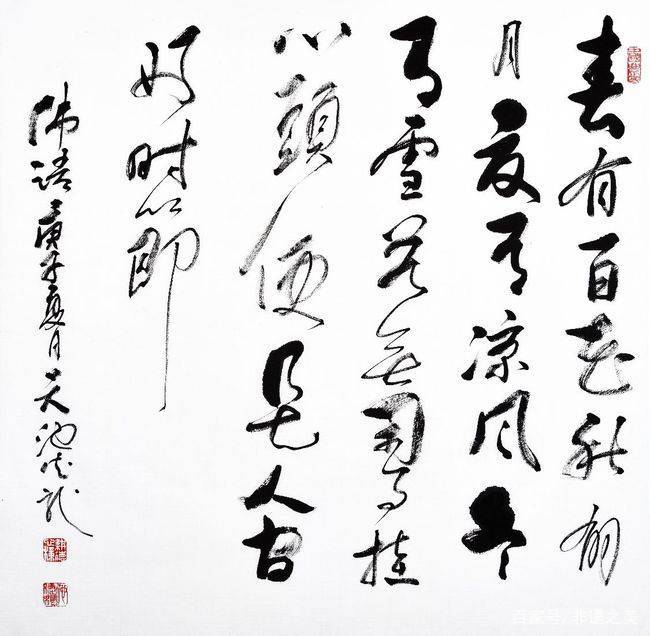 春有百花秋有
月夏有凉风冬
有雪若无闲事挂
心頭便是人间
好时節
佛语庚子夏月天池龙
百家号/非遗之美